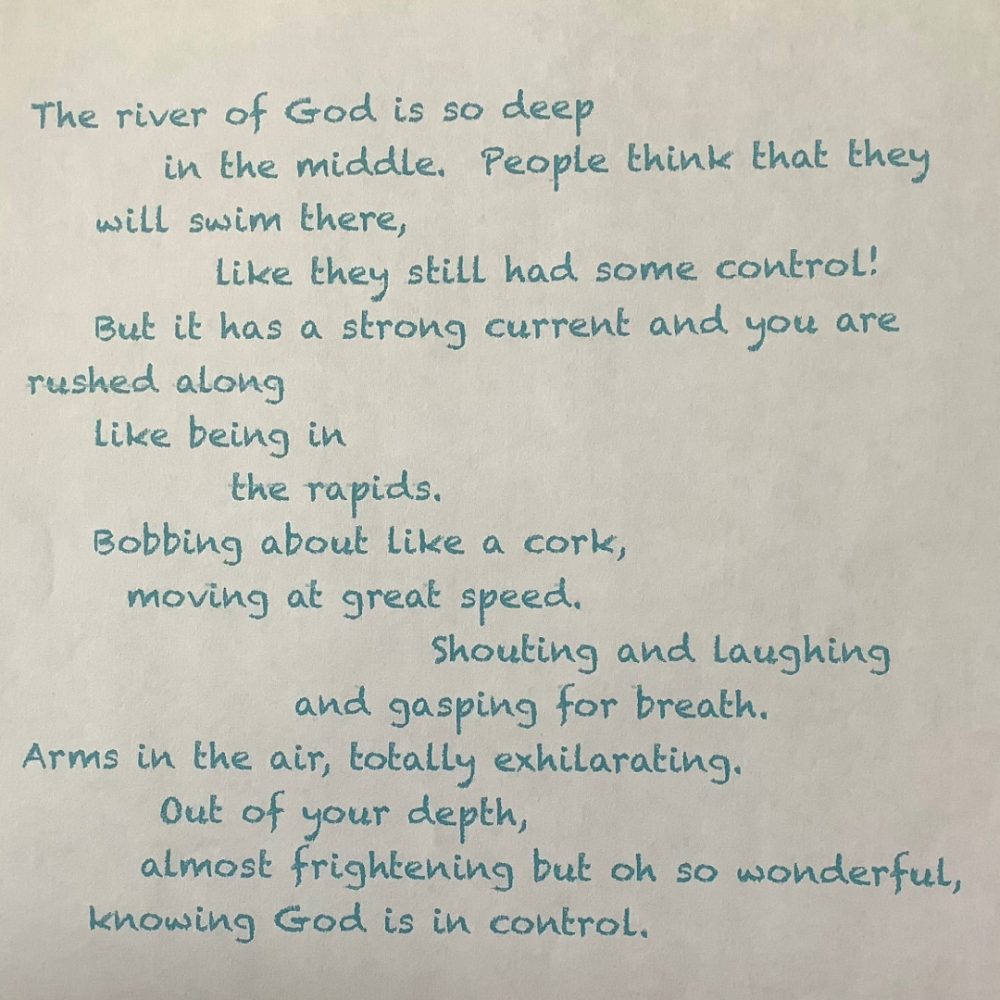 The river of God is so deep
in the middle. People think that they
will swim there,
like they still had some control!
But it has a strong current and you are
rushed along
like being in
the rapids.
Bobbing about like a cork,
moving at great speed.
Shouting and laughing
and gasping for breath.
Arms in the air, totally exhilarating.
Out of your depth,
almost frightening but oh so wonderful,
knowing God is in control.